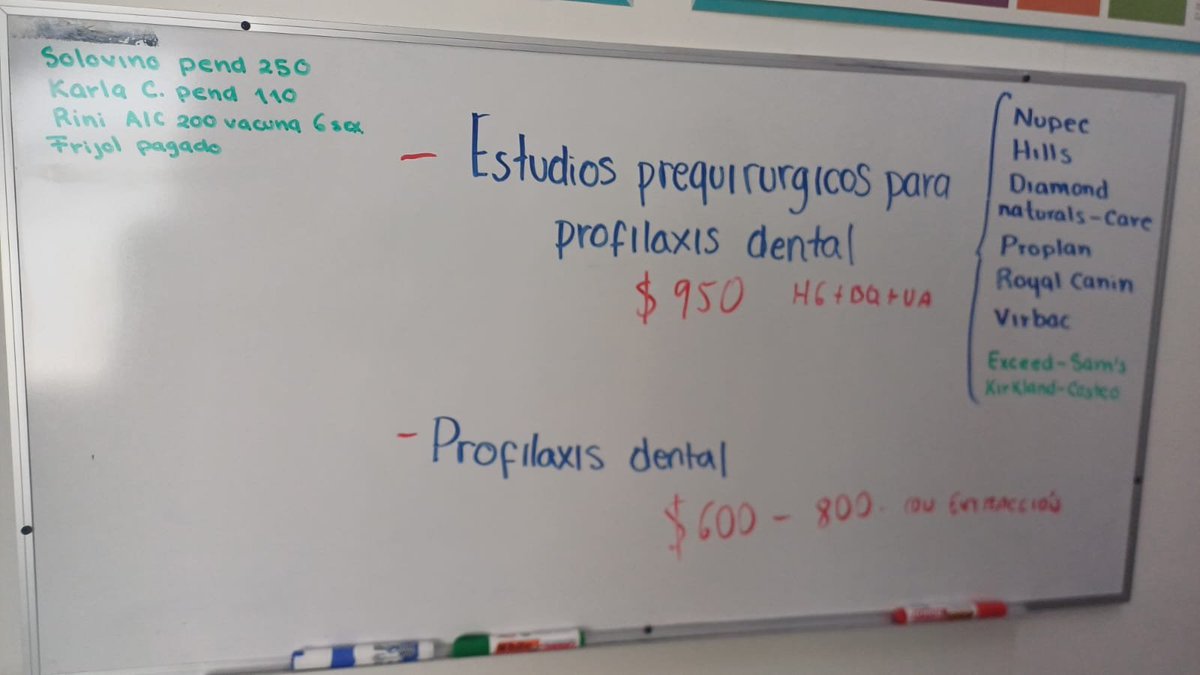 Solovino pend 250
Karla C. pend 110
Rini A/C 200 vacuna 6 sex
Frijol pagado
- Estudios prequirurgicos para
profilaxis dental
$950 HG+BQ+UA
- Profilaxis dental
$600 - 800. con extracción
Nupec
Hills
Diamond
naturals-Care
Proplan
Royal Canin
Virbac
Exceed-Sam's
Kirkland-Costco